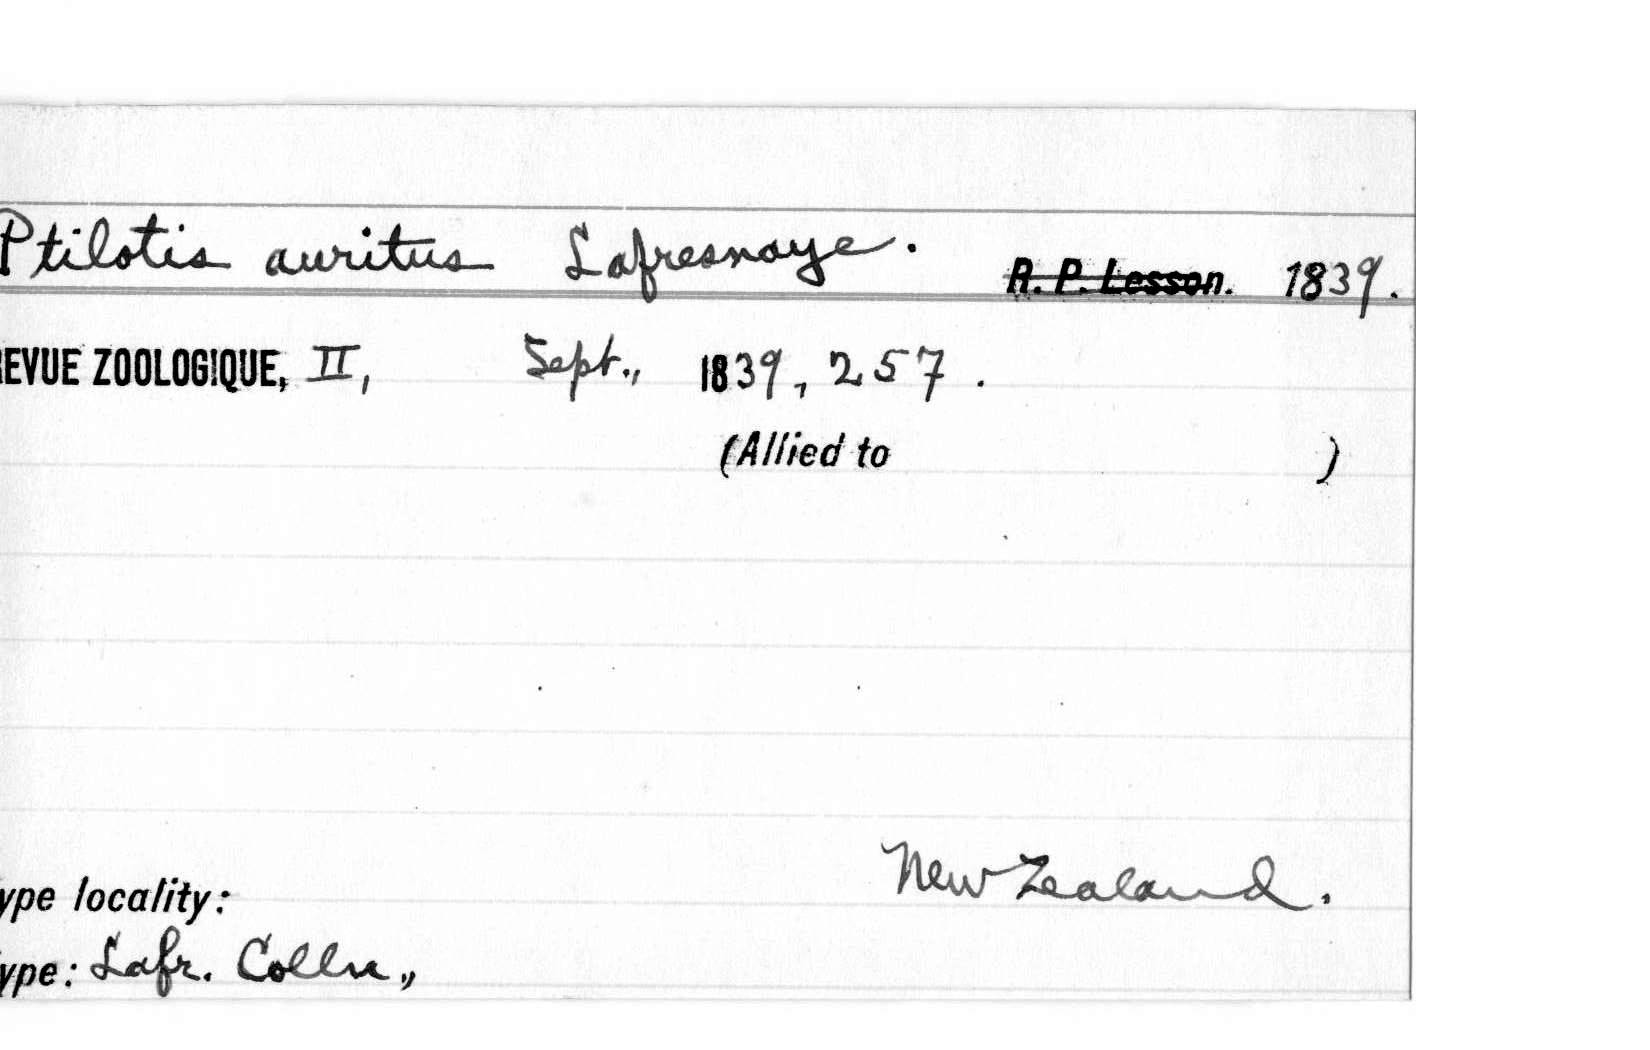 Ptilotis auritus Lafresnaye. R. P. Lesson. 1839.
EVUE ZOOLOGIQUE, II, Sept., 1839, 257.
(Allied to )
New Zealand.
ype locality:
ype: Lafr. Colln.,